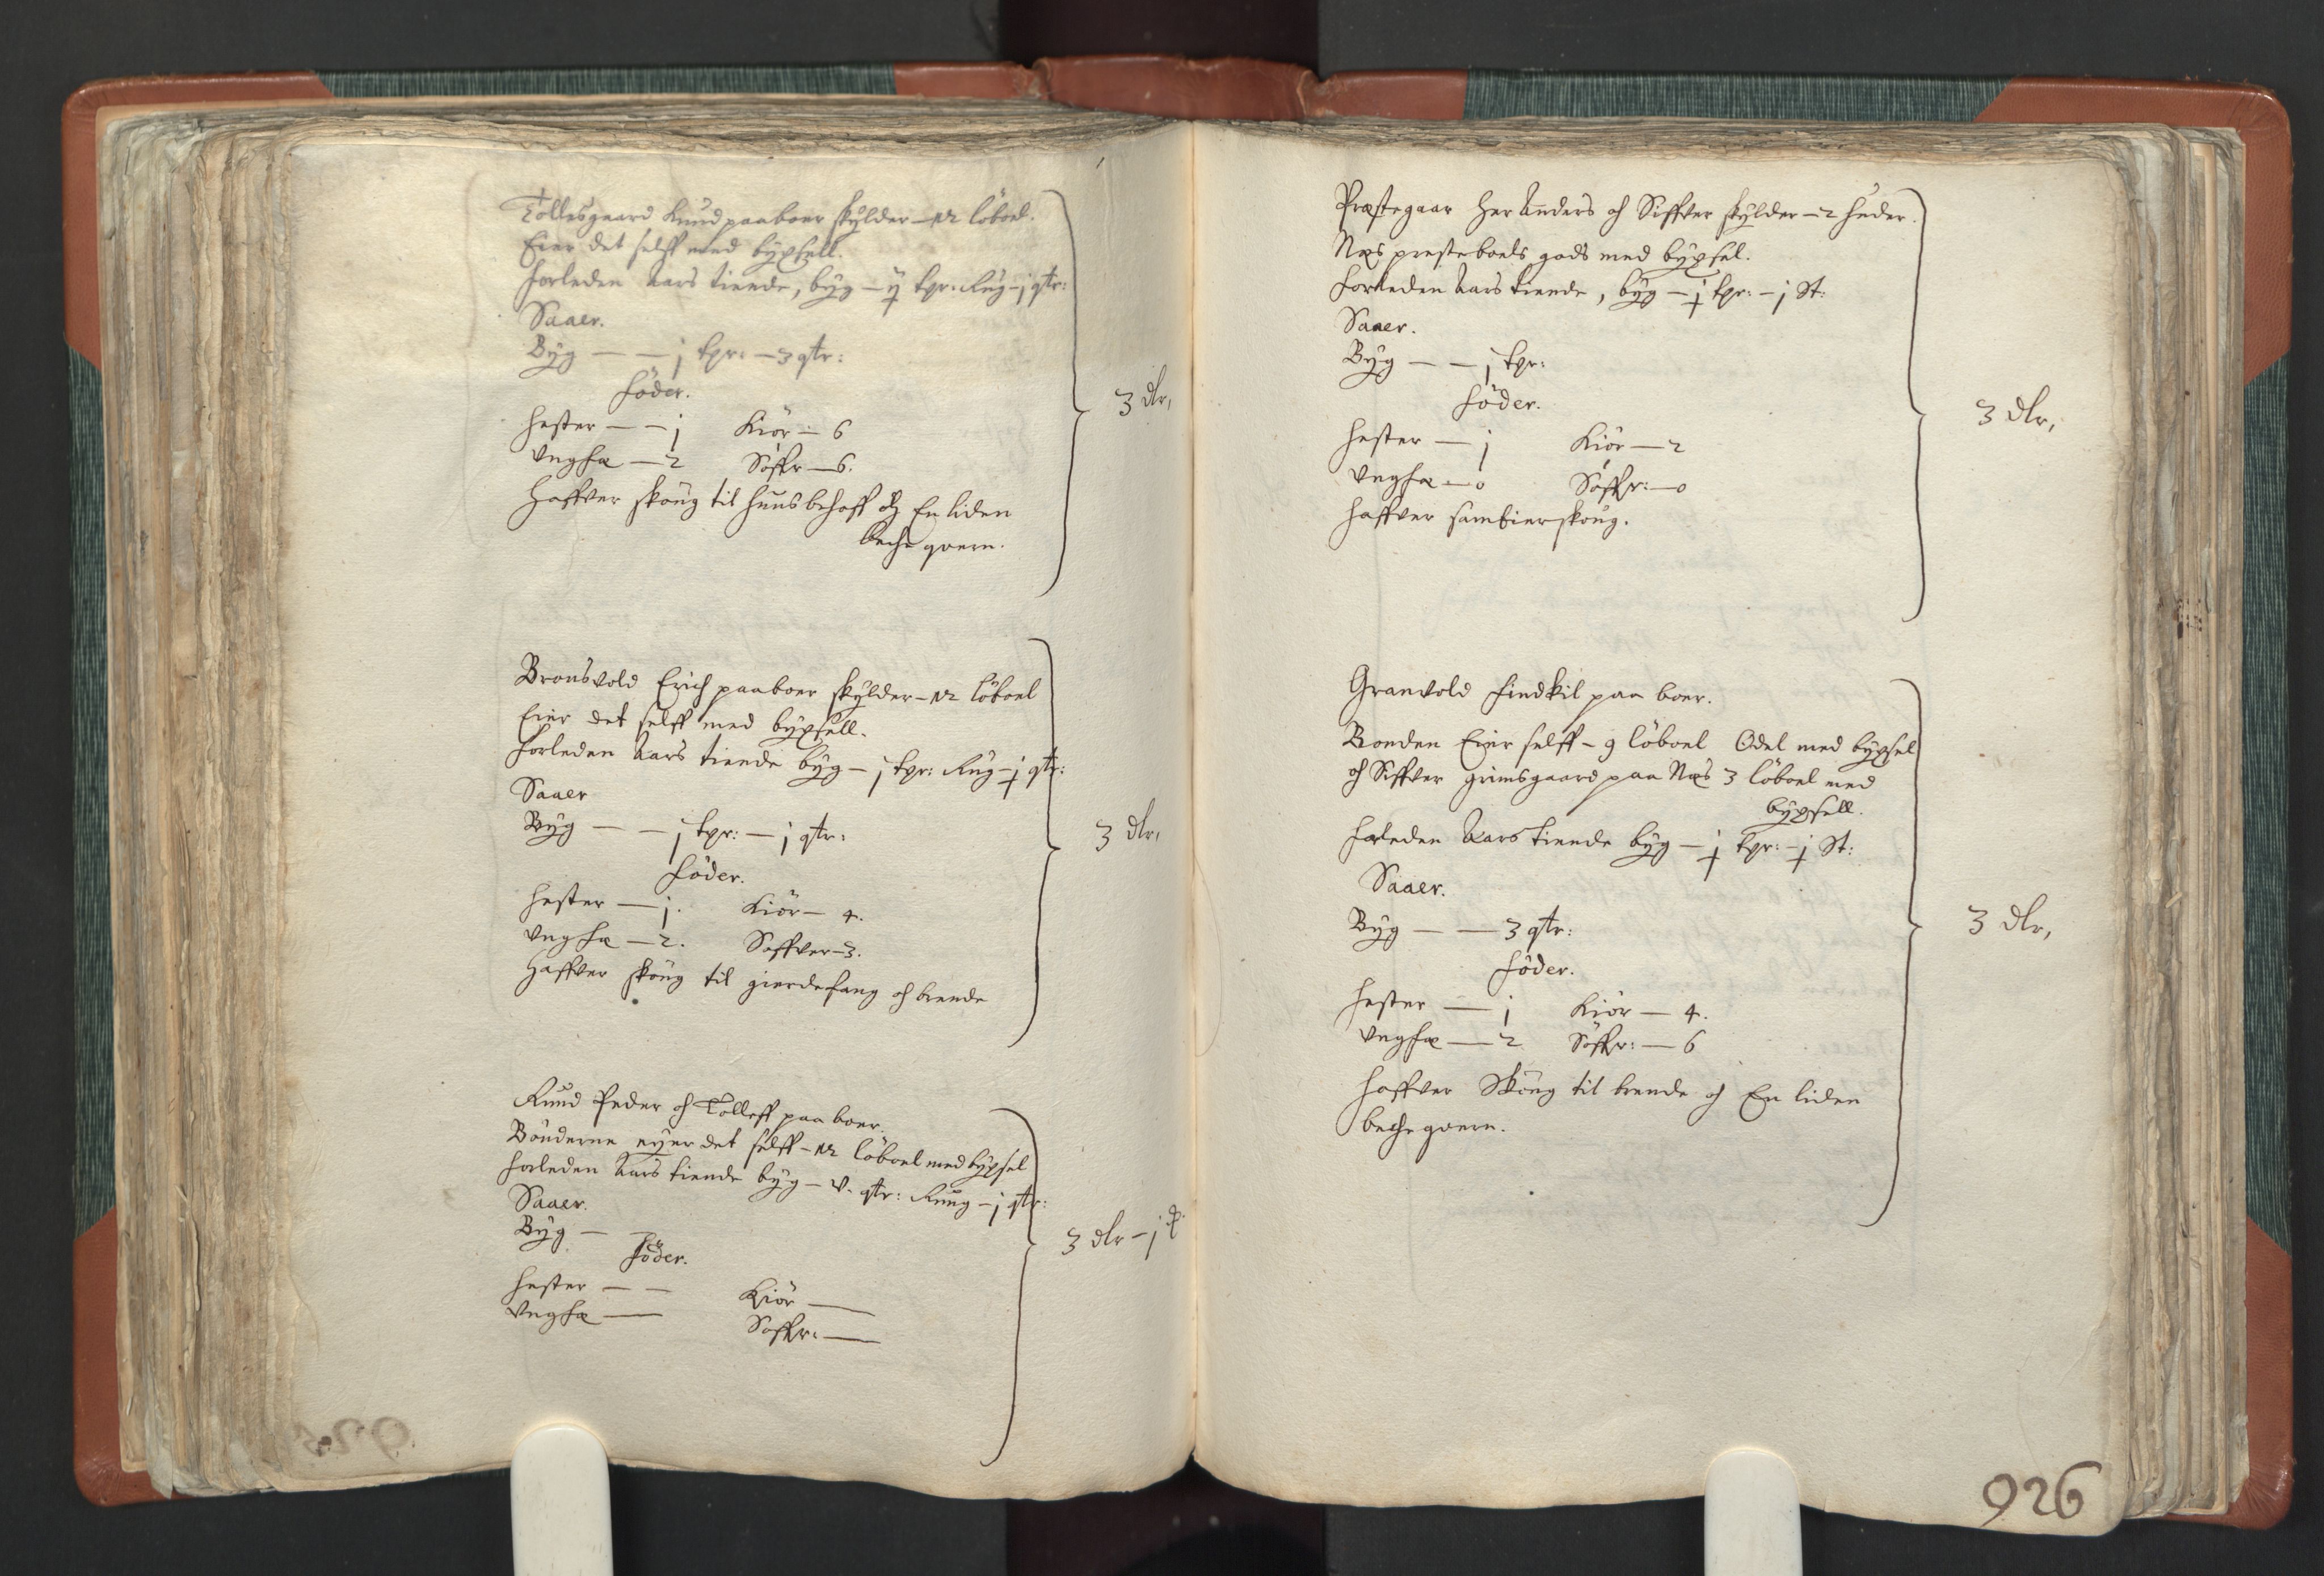 Tollesgaard Knud paaboer skylder – 12 löboel.
Eier det selff med byxsell.
Forleden Aars tiende, byg – ij tpr: Rug – j qtr:
Saaer.
Byg — — j tpr: – 3 qtr:
Föder.
Hester — – j Kiör – 6
Ungfæ — 2 Söffr — 6.
Haffver skoug til huusbehoff och En liden
beche qvern.
3 dlr,
Bronsvold Erich paaboer skylder – 12 löboel
Eier det selff med byxsell.
Forleden Aars tiende byg – j tpr: Rug – j qtr:
Saaer
Byg — — j tpr: — j qtr:
Föder.
Hester — j. Kiör – 4.
Ungfæ — 2. Soffver – 3.
Haffver skoug til gierdefang och brende
3 dlr,
Ruud Peder och Tolleff paa boer.
Bönderne eyer det selff – 12 löboel med byxsel
Forleden Aars tiende byg – v. qtr: Ruug – j qtr:
Saaer.
Byg —
Föder.
Hester — — Kiör —
Ungfæ — Soffr: —
3 dlr – j
Præstegaar Her Anders och Siffver skylder – 2 Huder.
Næs presteboels gods med byxsel.
Forleden Aars tiende, byg – j tpr: – j St:
Saaer.
Byg — — j tpr:
Föder.
Hester — j Kiör — 2
Ungfæ — 0 Söffr: — 0
Haffver sambeier skoug.
3 dlr,
Granvold Findkil paa boer.
Bonden Eier selff – 9 löboel Odel med byxsel
och Siffver Grimsgaard paa Næs 3 löboel med
byxsell.
Forleden Aars tiende byg – j tpr: – j St:
Saaer.
Byg — — 3 qtr:
Föder.
Hester — j Kiör — 4.
Ungfæ — 2 Söffr: — 6
Haffver Skoug til brende och En liden
beche qvern.
3 dlr,
926